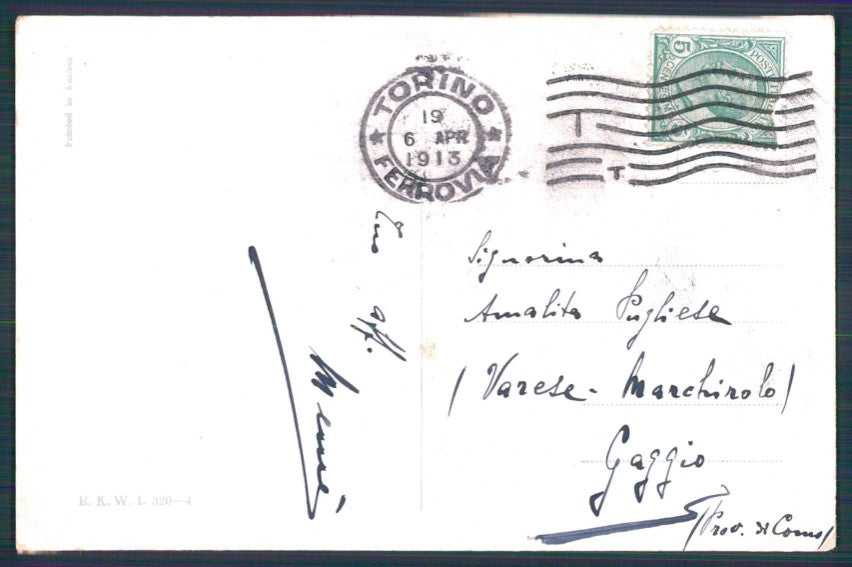 Printed in Austria
TORINO
19
6 APR
1913
FERROVIA
T
T
5
POSTE
Tuo aff.
Signorina
Amalita Pugliese
(Varese - Marchirolo)
Gaggio
(Prov. di Como)
B. K. W. I. 320-4